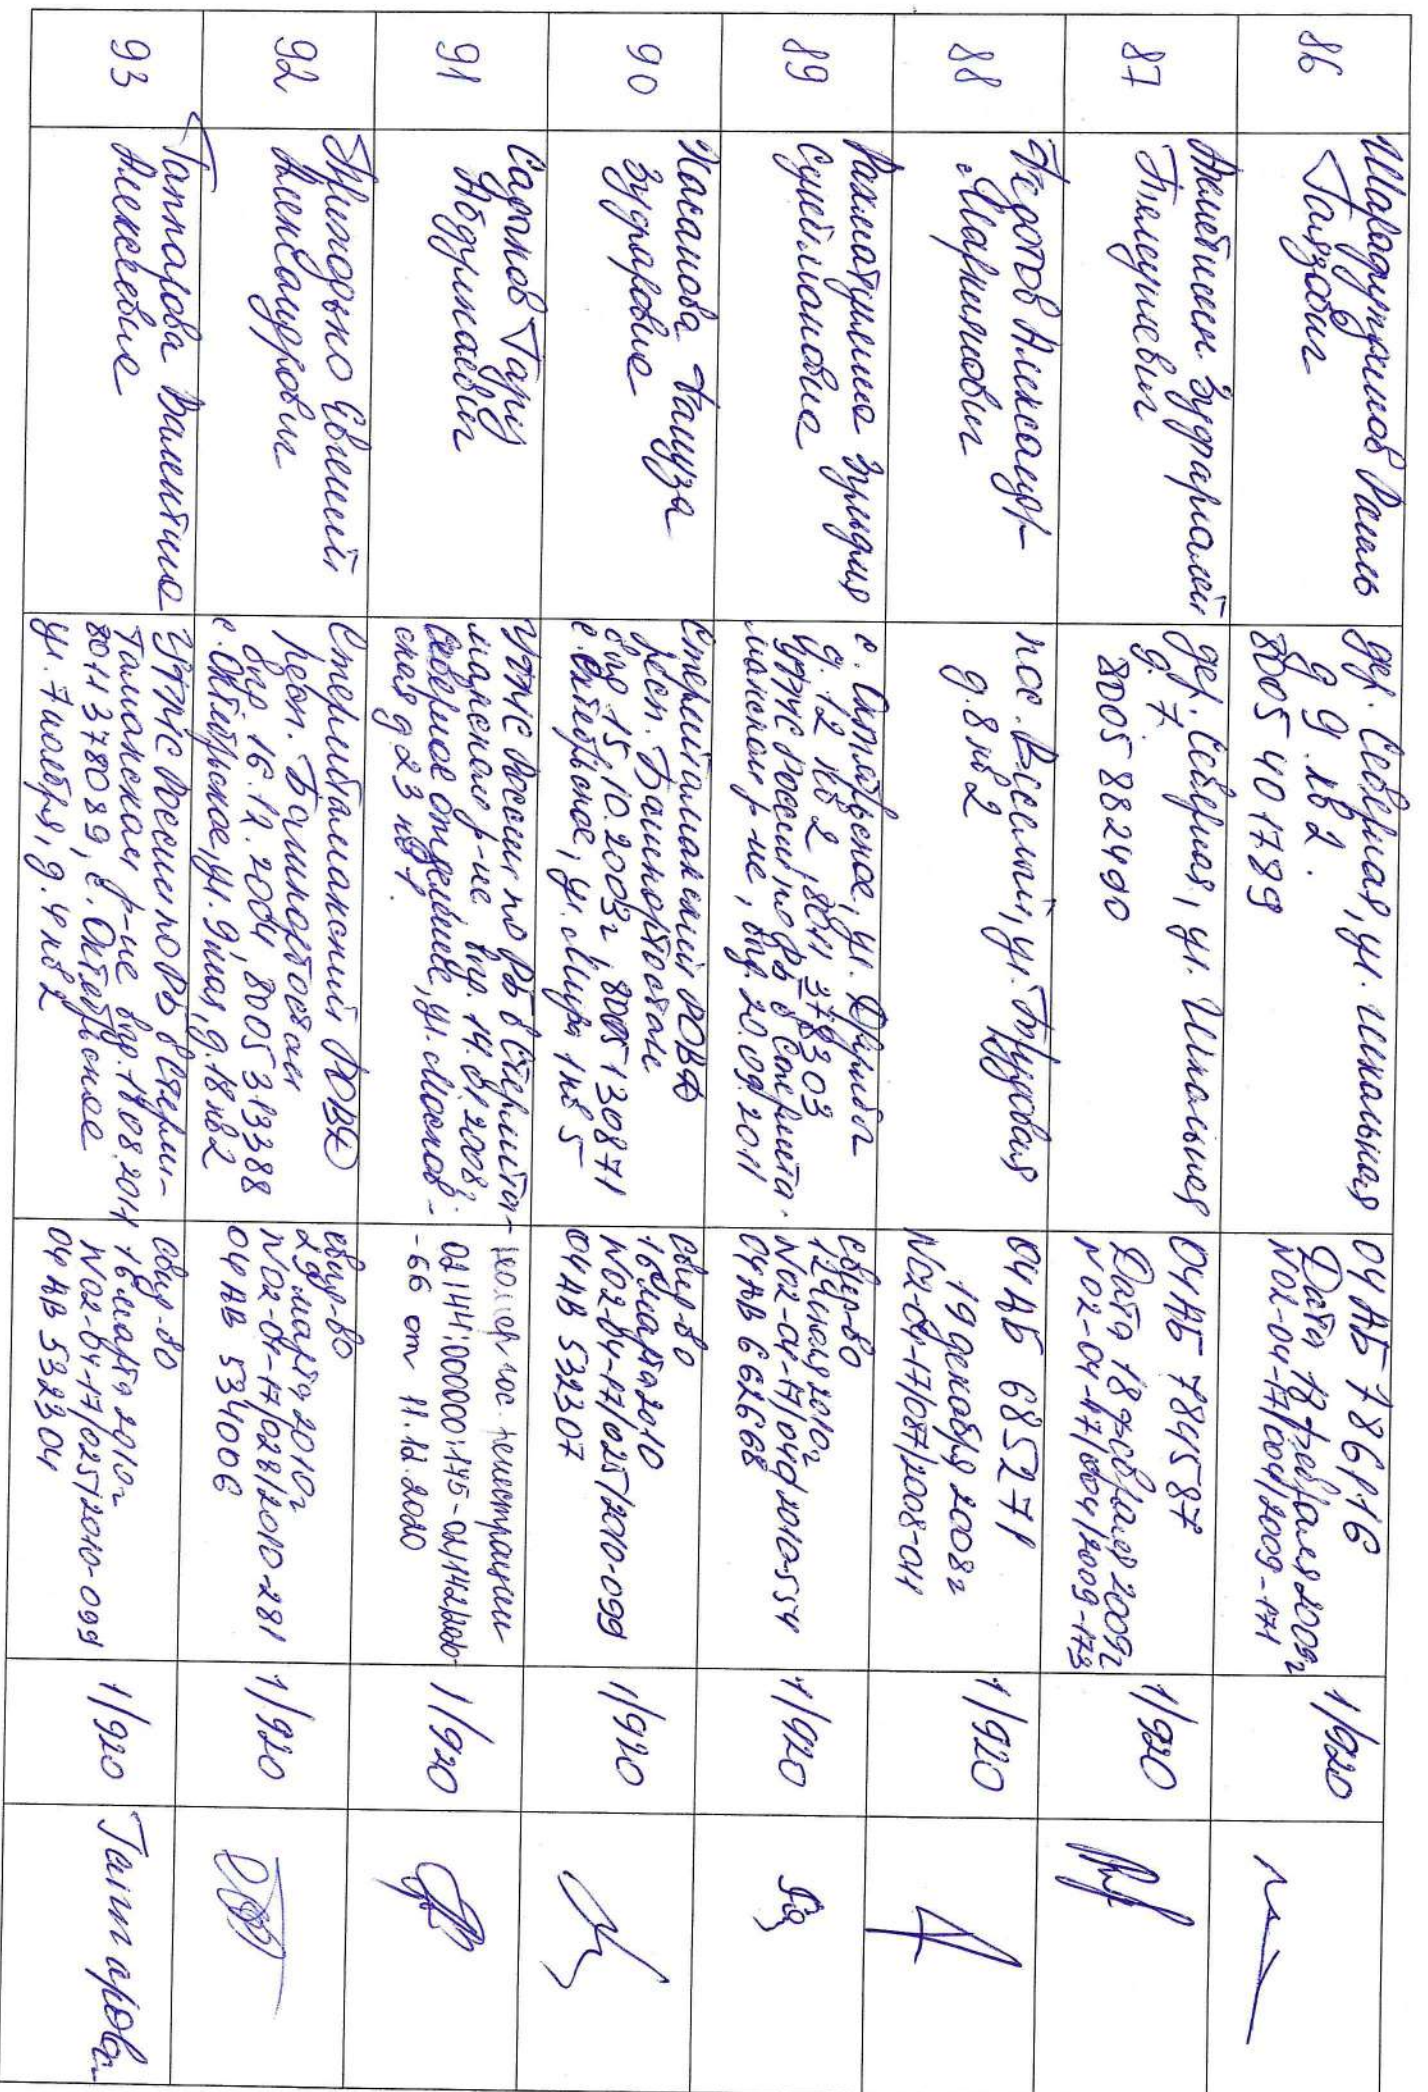 86
Шарафутдинов Рамиль
Галязович
дер. Северная, ул. Школьная
д 9 кв 2.
8005 401789
04 АБ 786116
Дата 18 февраля 2009г
N 02-04-17/004/2009-171
1/920
87
Зуфаримен
дер. Северная, ул. Школьная
д. 7
8005 882490
04 АБ 784587
Дата 18 февраля 2009г
N 02-04-17/004/2009-173
1/920
88
Федотов Александр
Маркиянович
пос. Веселый, ул. Трудовая
д. 8 кв 2
04 АБ 685271
19 декабря 2008г
N02-04-17/087/2008-011
1/920
89
Рахматуллина
Сулеймановна
с. Октябрьское, ул. Дружбы
д. 12 кв 2, 8011 378303
УФМС России по РБ в Стерлита-
макском р-не, выд. 20.09.2011
свид-во
12 мая 2010г
N02-04-17/049/2010-554
04 АВ 662668
1/920
90
Хасанова Фашуза
Зуфаровна
Стерлитамакский РОВД
Респ. Башкортостан
выд 15.10.2003г, 8005 130871
с. Октябрьское, ул. Мира 1 кв 5
свид-во
16 марта 2010
N02-04-17/025/2010-099
04 АВ 532307
1/920
91
Садыков Гару
УФМС России по РБ в Стерлита-
макском р-не выд. 14.01.2008,
Северное отделение, ул. Москов-
ская д 23 кв 1.
гос. регистрации
02/44:000000:145-02/142/2020-
-66 от 11.12.2020
1/920
92
Григорьно Евгений
Александрович
Стерлибашевский РОВД
Респ. Башкортостан
выд. 16.12.2004, 8005 313388
с. Октябрьское, ул. 9 мая, д. 18 кв 2
свид-во
29 марта 2010г
N02-04-17/028/2010-281
04 АВ 534006
1/920
93
Гаппарова Валентина
Алексеевна
УФМС России по РБ в Стерли-
тамакском р-не выд. 17.08.2011
8011 378089, с. Октябрьское
ул. 7 ноября, д. 4 кв 2
свид-во
16 марта 2010г
N02-04-17/025/2010-099
04 АВ 532304
1/920
Гаппарова